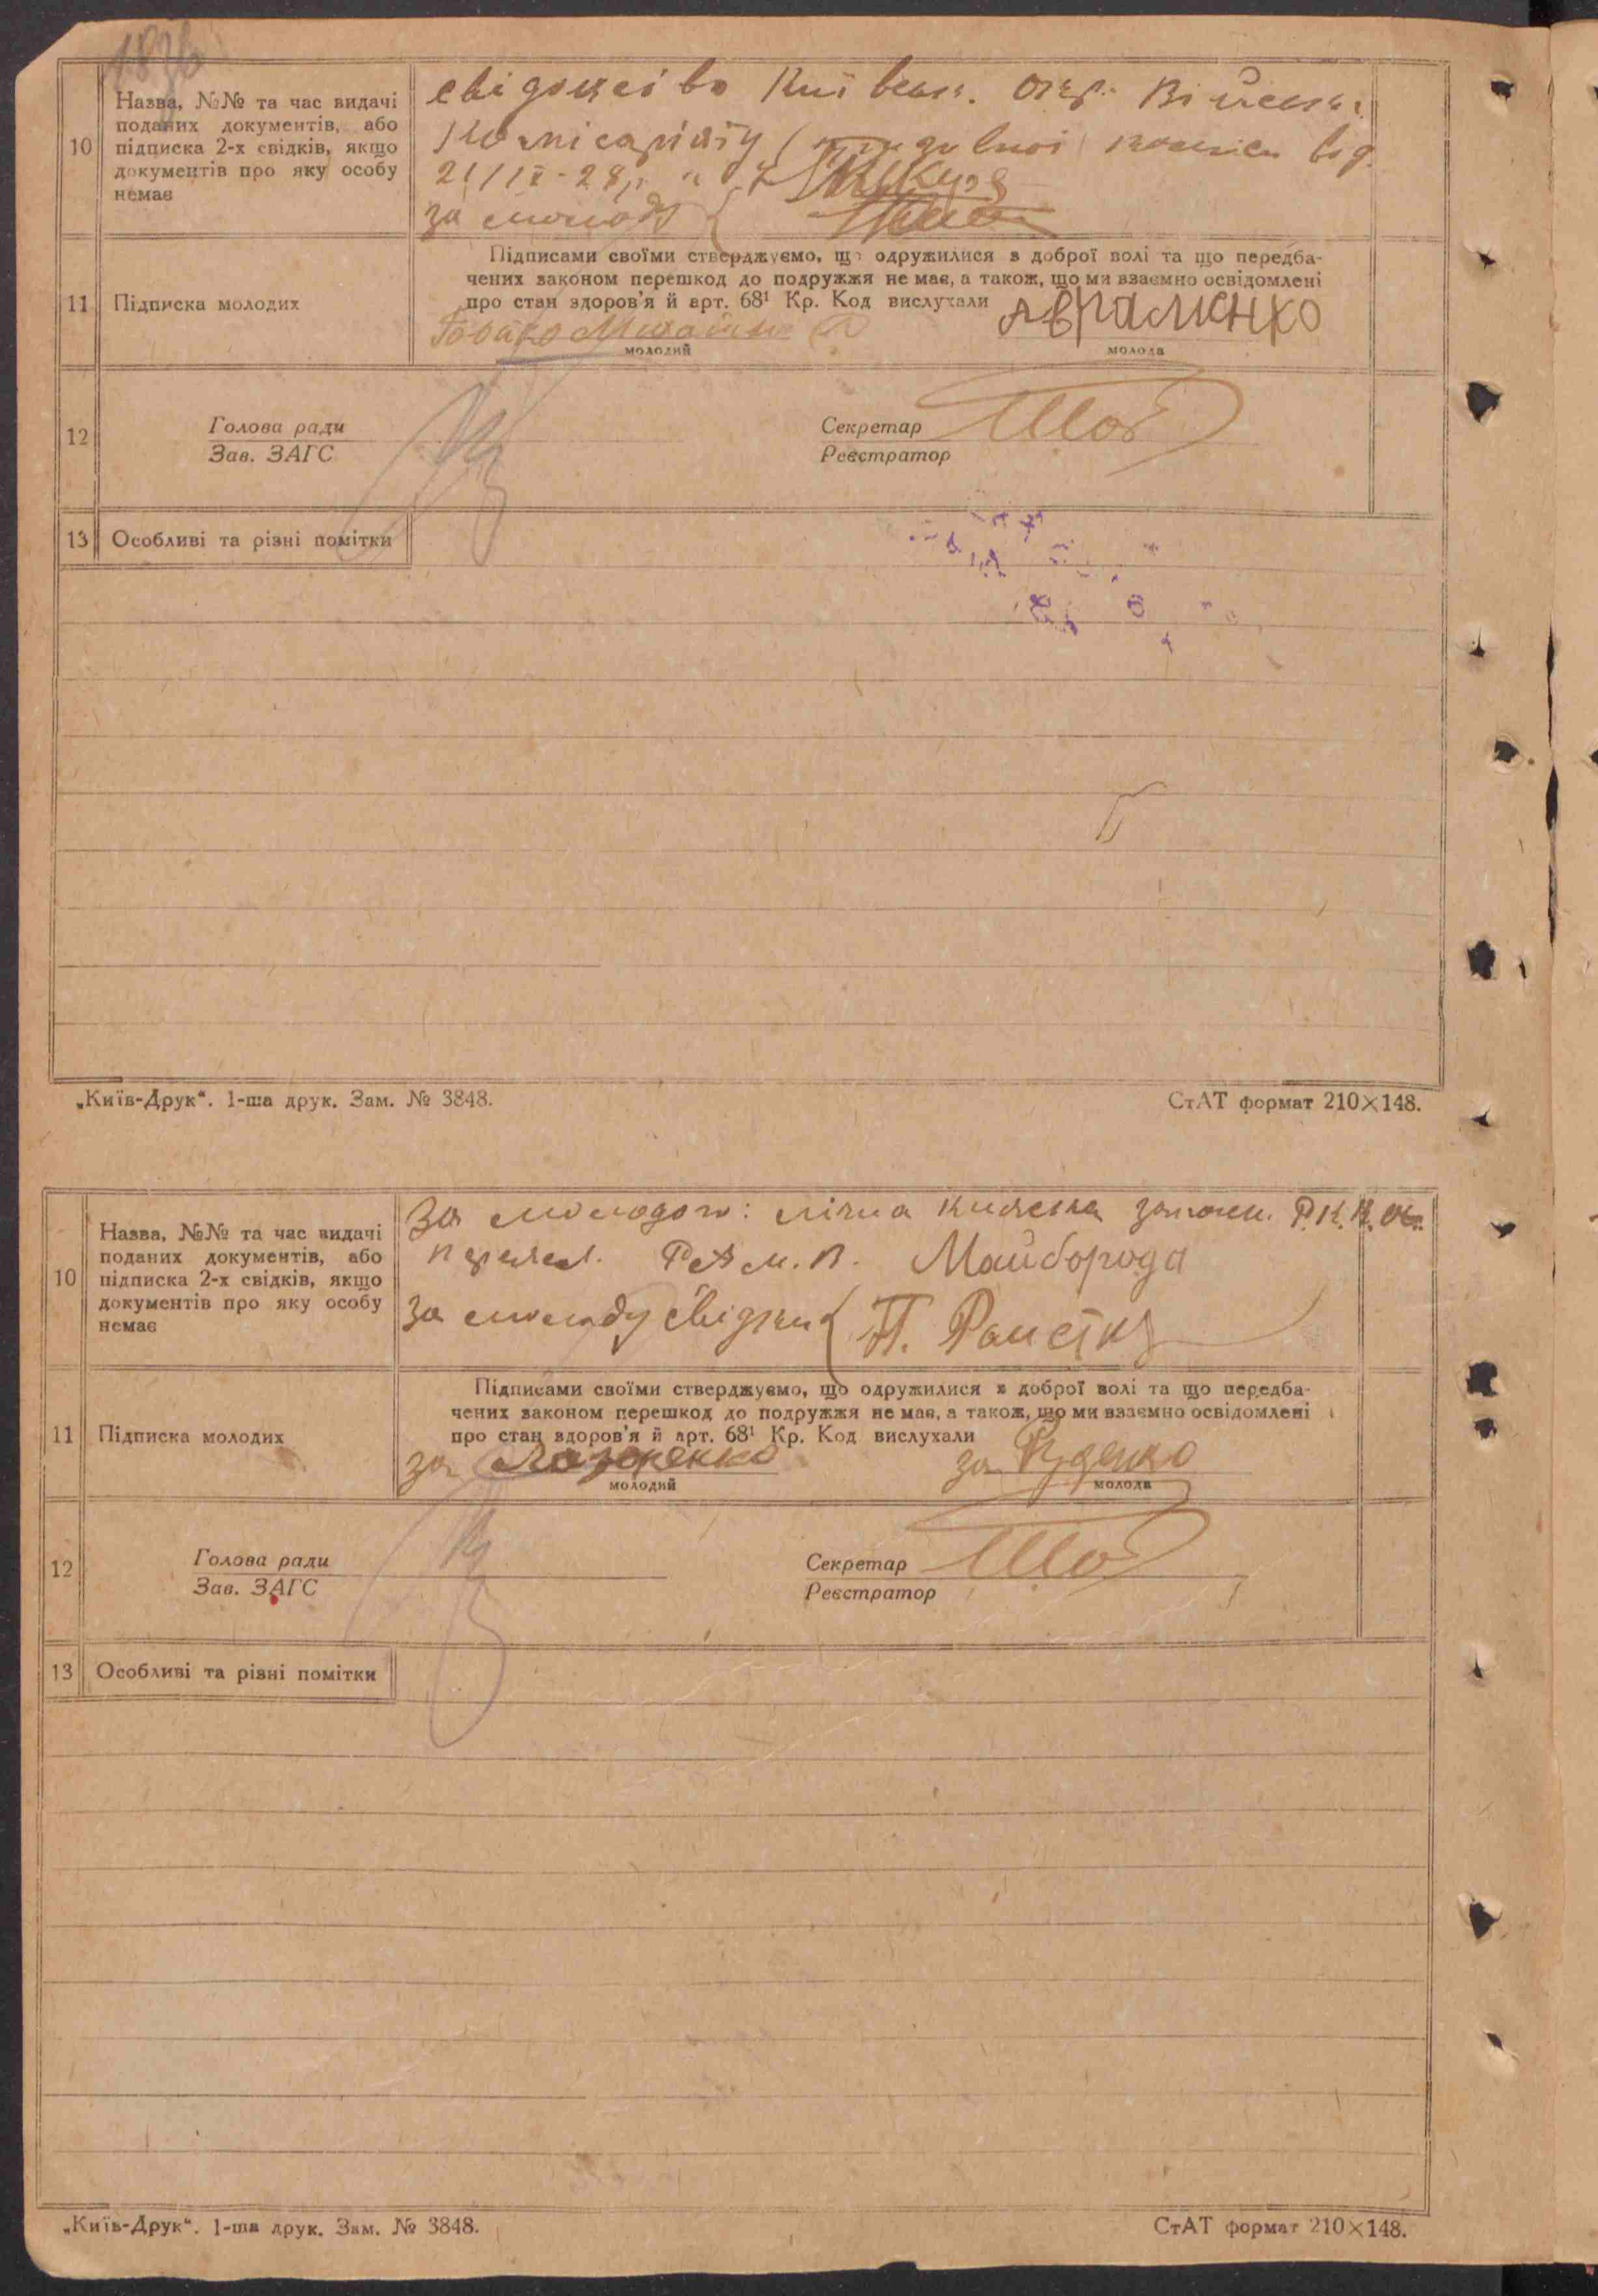 10
Назва, №№ та час видачі
поданих документів, або
підписка 2-х свідків, якщо
документів про яку особу
немає
Київськ. Окр.
від
21/IX-28р.
за молоду
11
Підписка молодих
Підписами своїми стверджуємо, що одружилися з доброї волі та що передба-
чених законом перешкод до подружжя не має, а також, що ми взаємно освідомлені
про стан здоров'я й арт. 68¹ Кр. Код вислухали
Авраменко
молодий
молода
12
Голова ради
Зав. ЗАГС
Секретар
Реєстратор
13
Особливі та різні помітки
„Київ-Друк“. 1-ша друк. Зам. № 3848.
СтАТ формат 210×148.
10
Назва, №№ та час видачі
поданих документів, або
підписка 2-х свідків, якщо
документів про яку особу
немає
За молодого: лічна книжка
Майборода
За молоду свідки
П.
11
Підписка молодих
Підписами своїми стверджуємо, що одружилися з доброї волі та що передба-
чених законом перешкод до подружжя не має, а також, що ми взаємно освідомлені
про стан здоров'я й арт. 68¹ Кр. Код вислухали
за
за Руденко
молодий
молода
12
Голова ради
Зав. ЗАГС
Секретар
Реєстратор
13
Особливі та різні помітки
„Київ-Друк“. 1-ша друк. Зам. № 3848.
СтАТ формат 210×148.